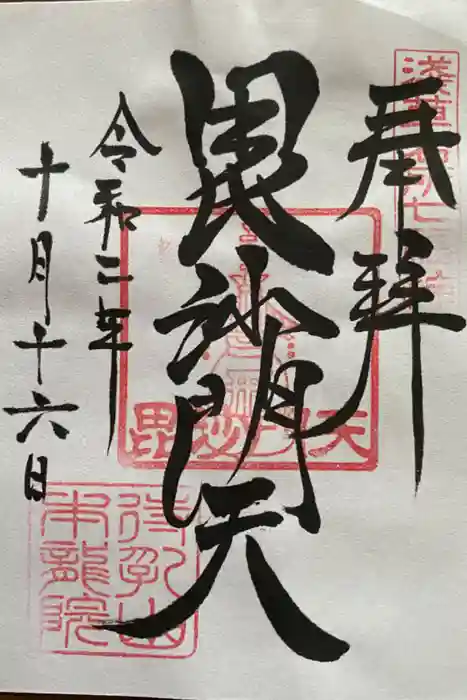 奉拝
毘沙門天
令和二年
十月十六日
浅草名所七福神
毘沙門天
待乳山
本龍院